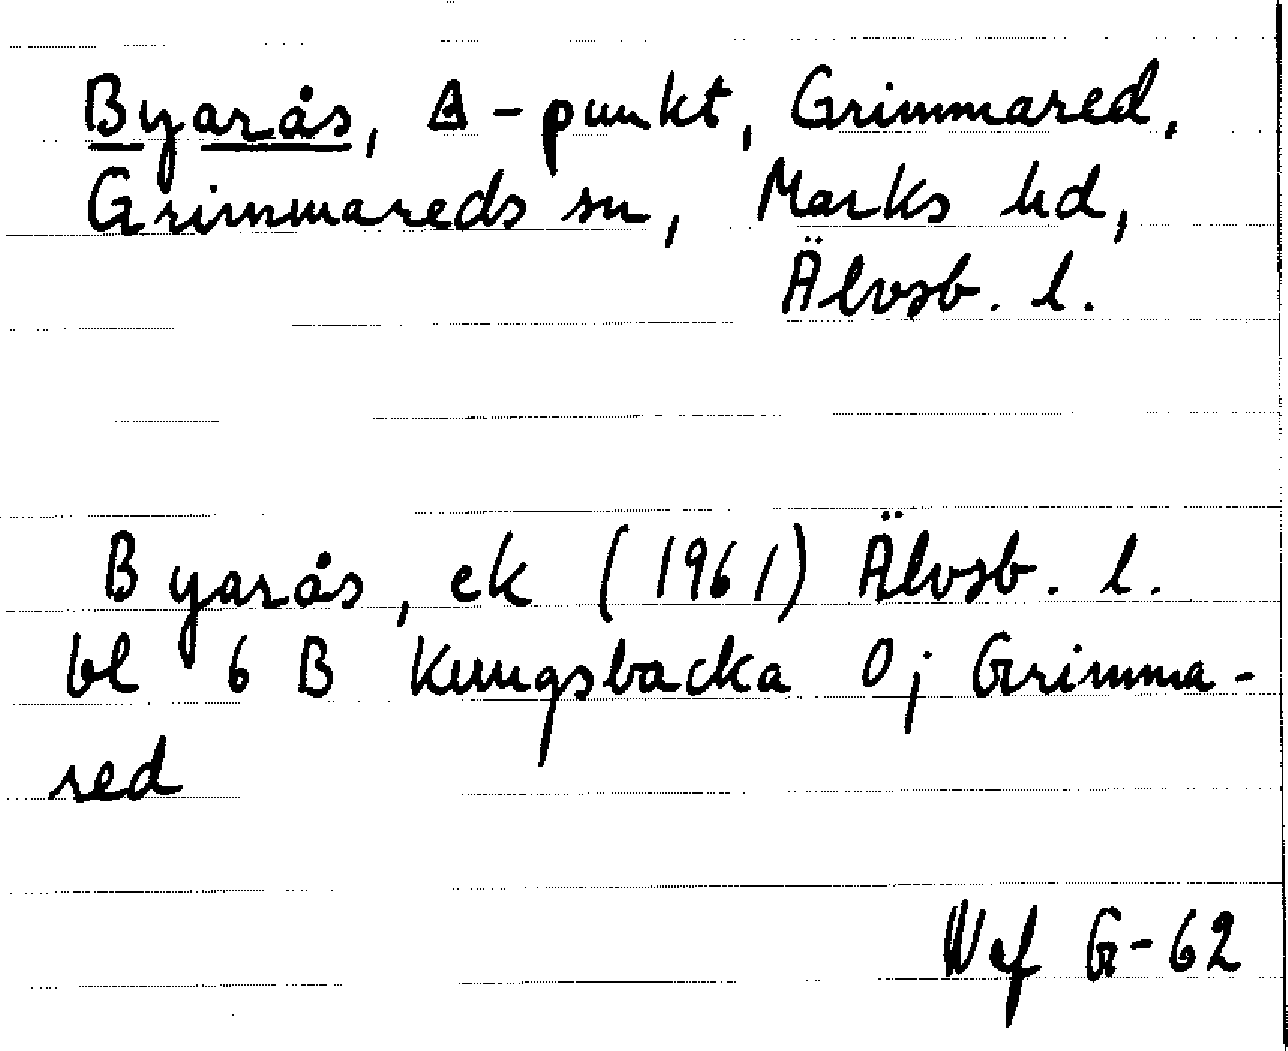 Byarås, Δ-punkt, Grimmared,
Grimmareds sn, Marks hd,
Älvsb. l.
Byarås, ek (1961) Älvsb. l.
bl 6 B Kungsbacka 0j Grimma-
red
G-62